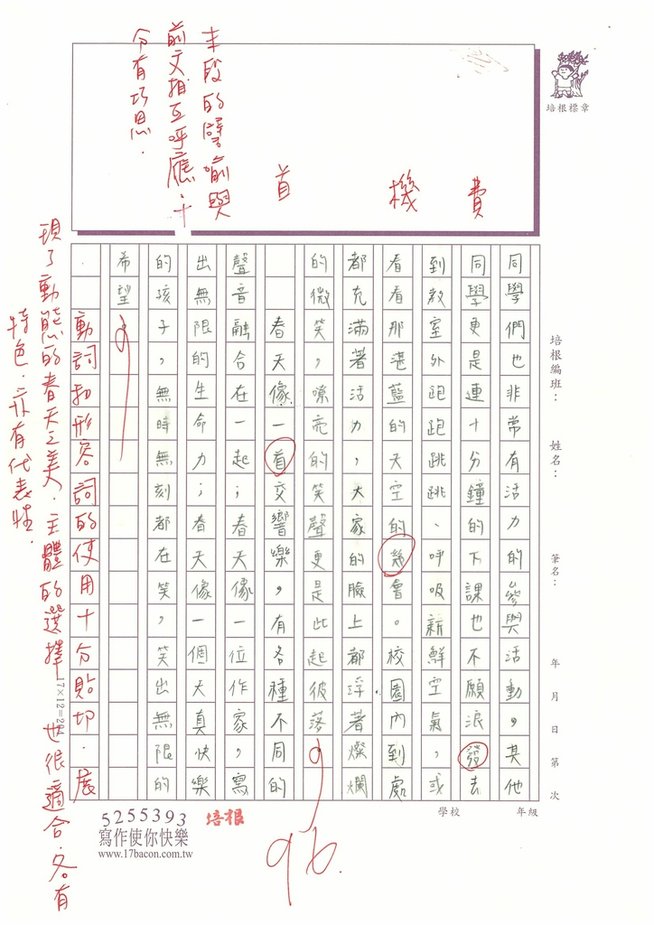 培根標章
費
機
首
末段的譬喻與
前文相互呼應,十
分有巧思.
同學們也非常有活力的參與活動,其他
同學更是連十分鐘的下課也不願浪發去
到教室外跑跑跳跳、呼吸新鮮空氣,或
看看那湛藍的天空的幾會。校園內到處
都充滿著活力,大家的臉上都浮著燦爛
的微笑,嘹亮的笑聲更是此起彼落。
春天像一首交響樂,有各種不同的
聲音融合在一起;春天像一位作家,寫
出無限的生命力;春天像一個天真快樂
的孩子,無時無刻都在笑,笑出無限的
希望。
動詞和形容詞的使用十分貼切.展
現了動態的春天之美.主體的選擇也很適合.各有
特色.亦有代表性.
96.
培根編班:
姓名:
筆名:
年 月 日 第 次
17×12=20
學校
年級
5255393
培根
寫作使你快樂
www.17bacon.com.tw